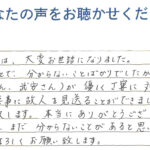 なたの声をお聴かせくだ
は、大変お世話になりました。
とで、分からないことばかりでしたか
ん、武安さん)が優しく丁寧に
事に故人を見送ることができまし
します。本当にありがとうござ
、まだ分からないことがあると思
ろしくお願い致します。